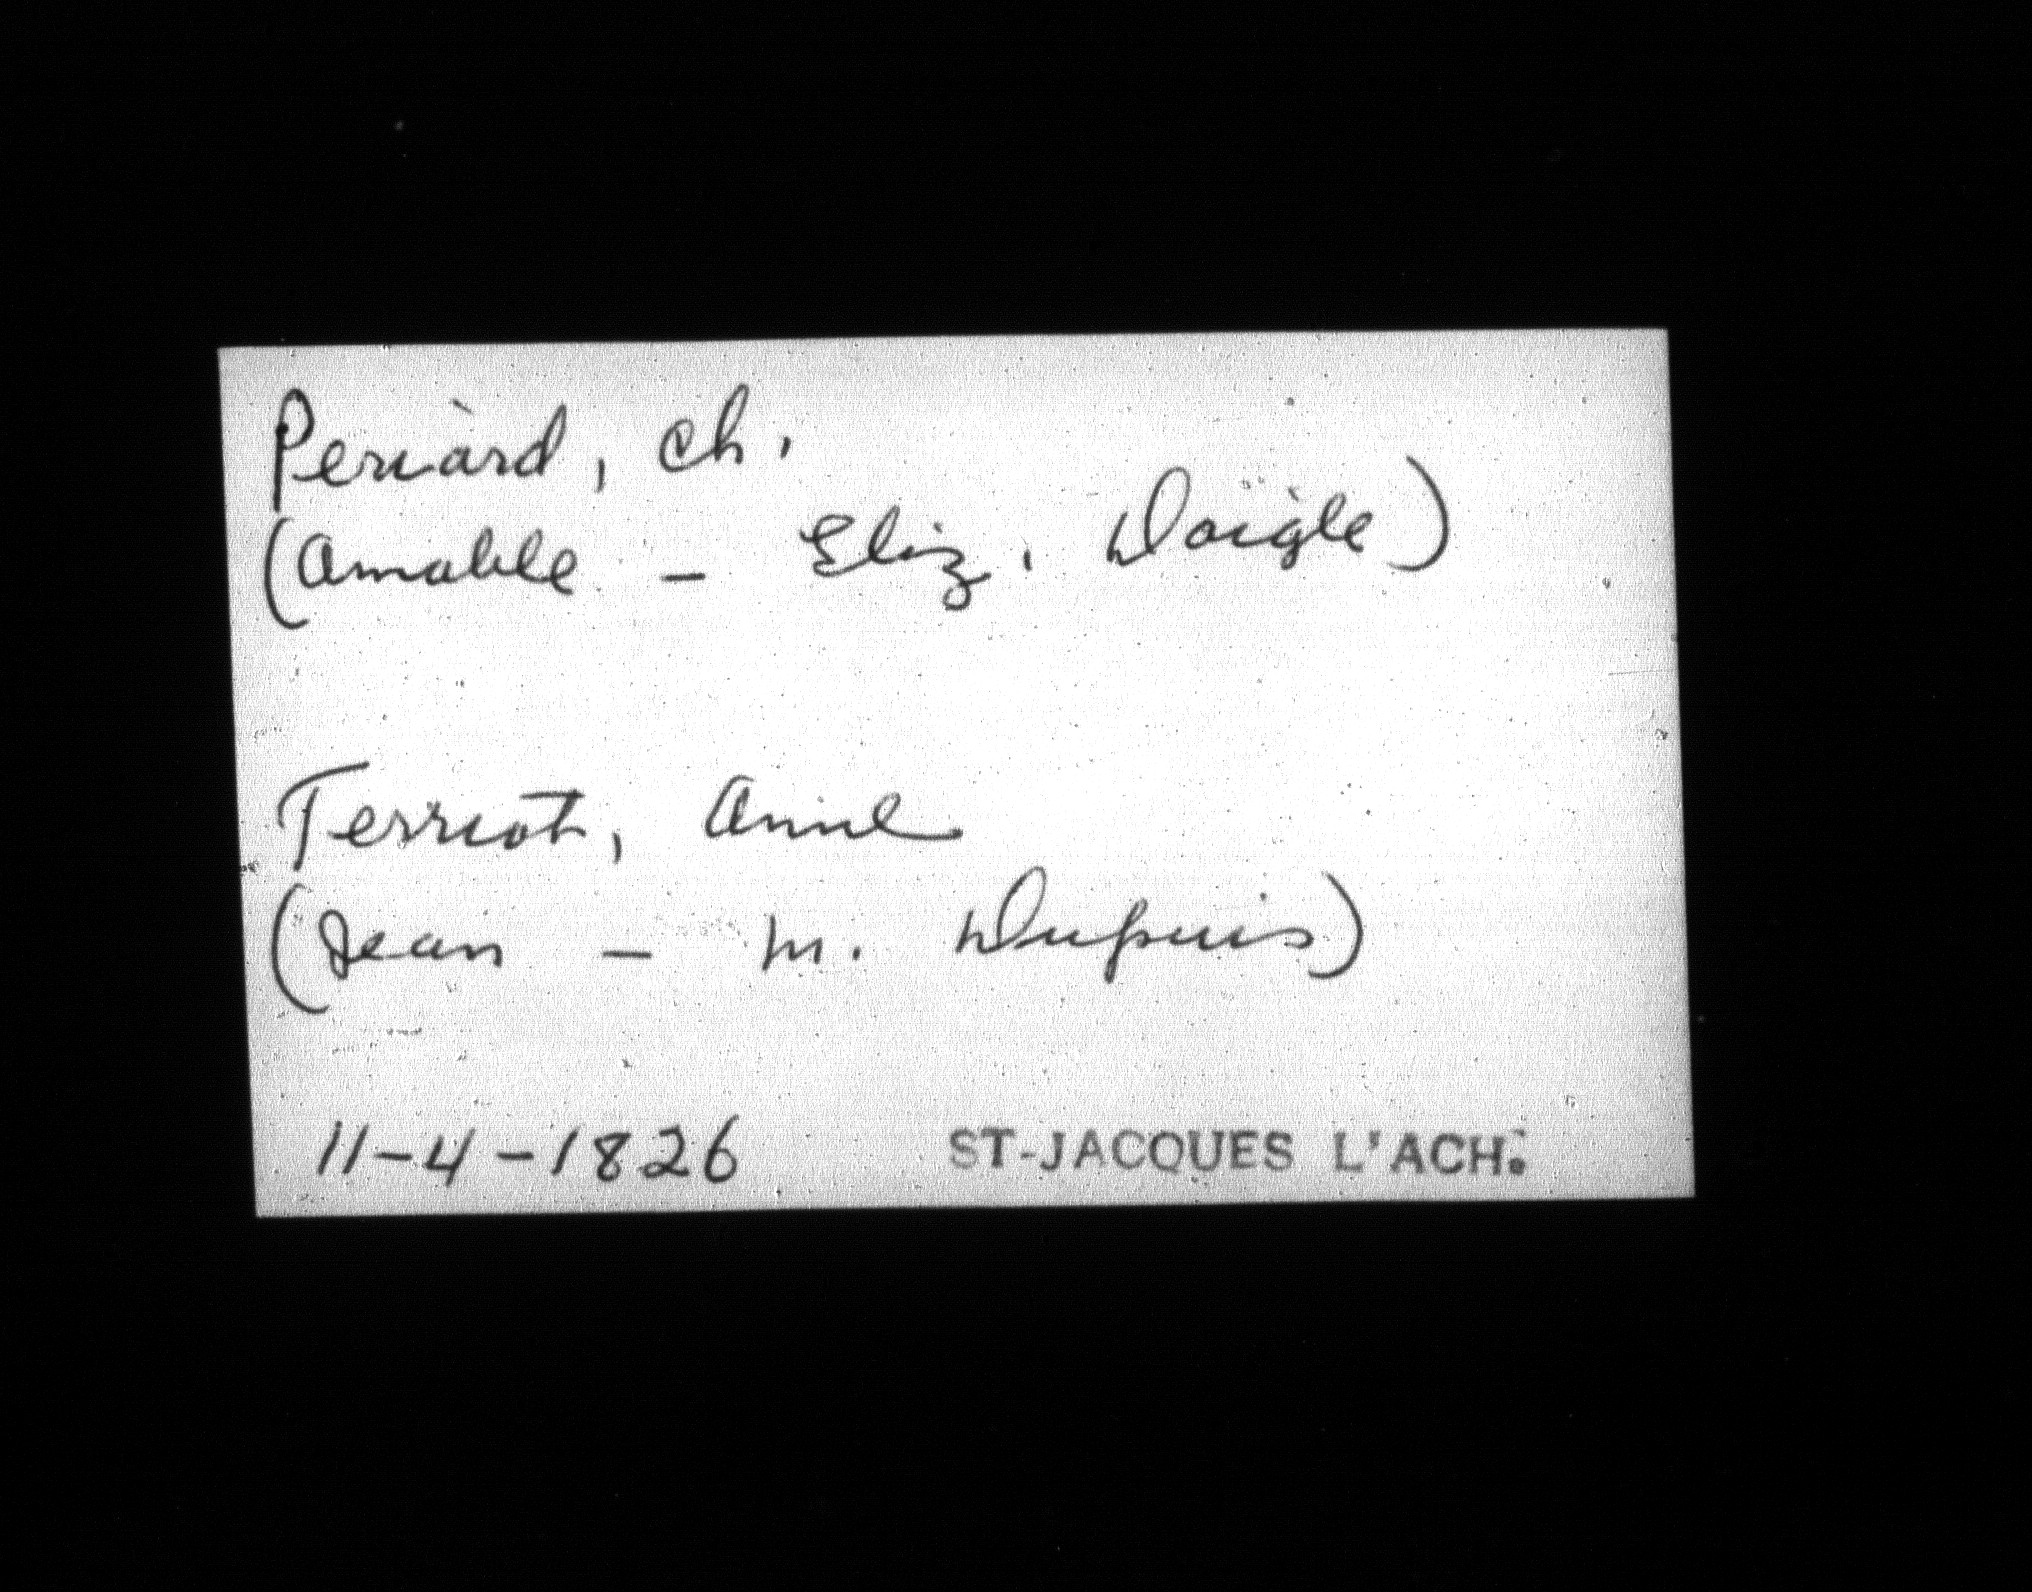 Periard, Ch.
(Amable - Eliz. Daigle)
Terriot, Anne
(Jean - M. Dupuis)
11-4-1826 ST-JACQUES L'ACH.